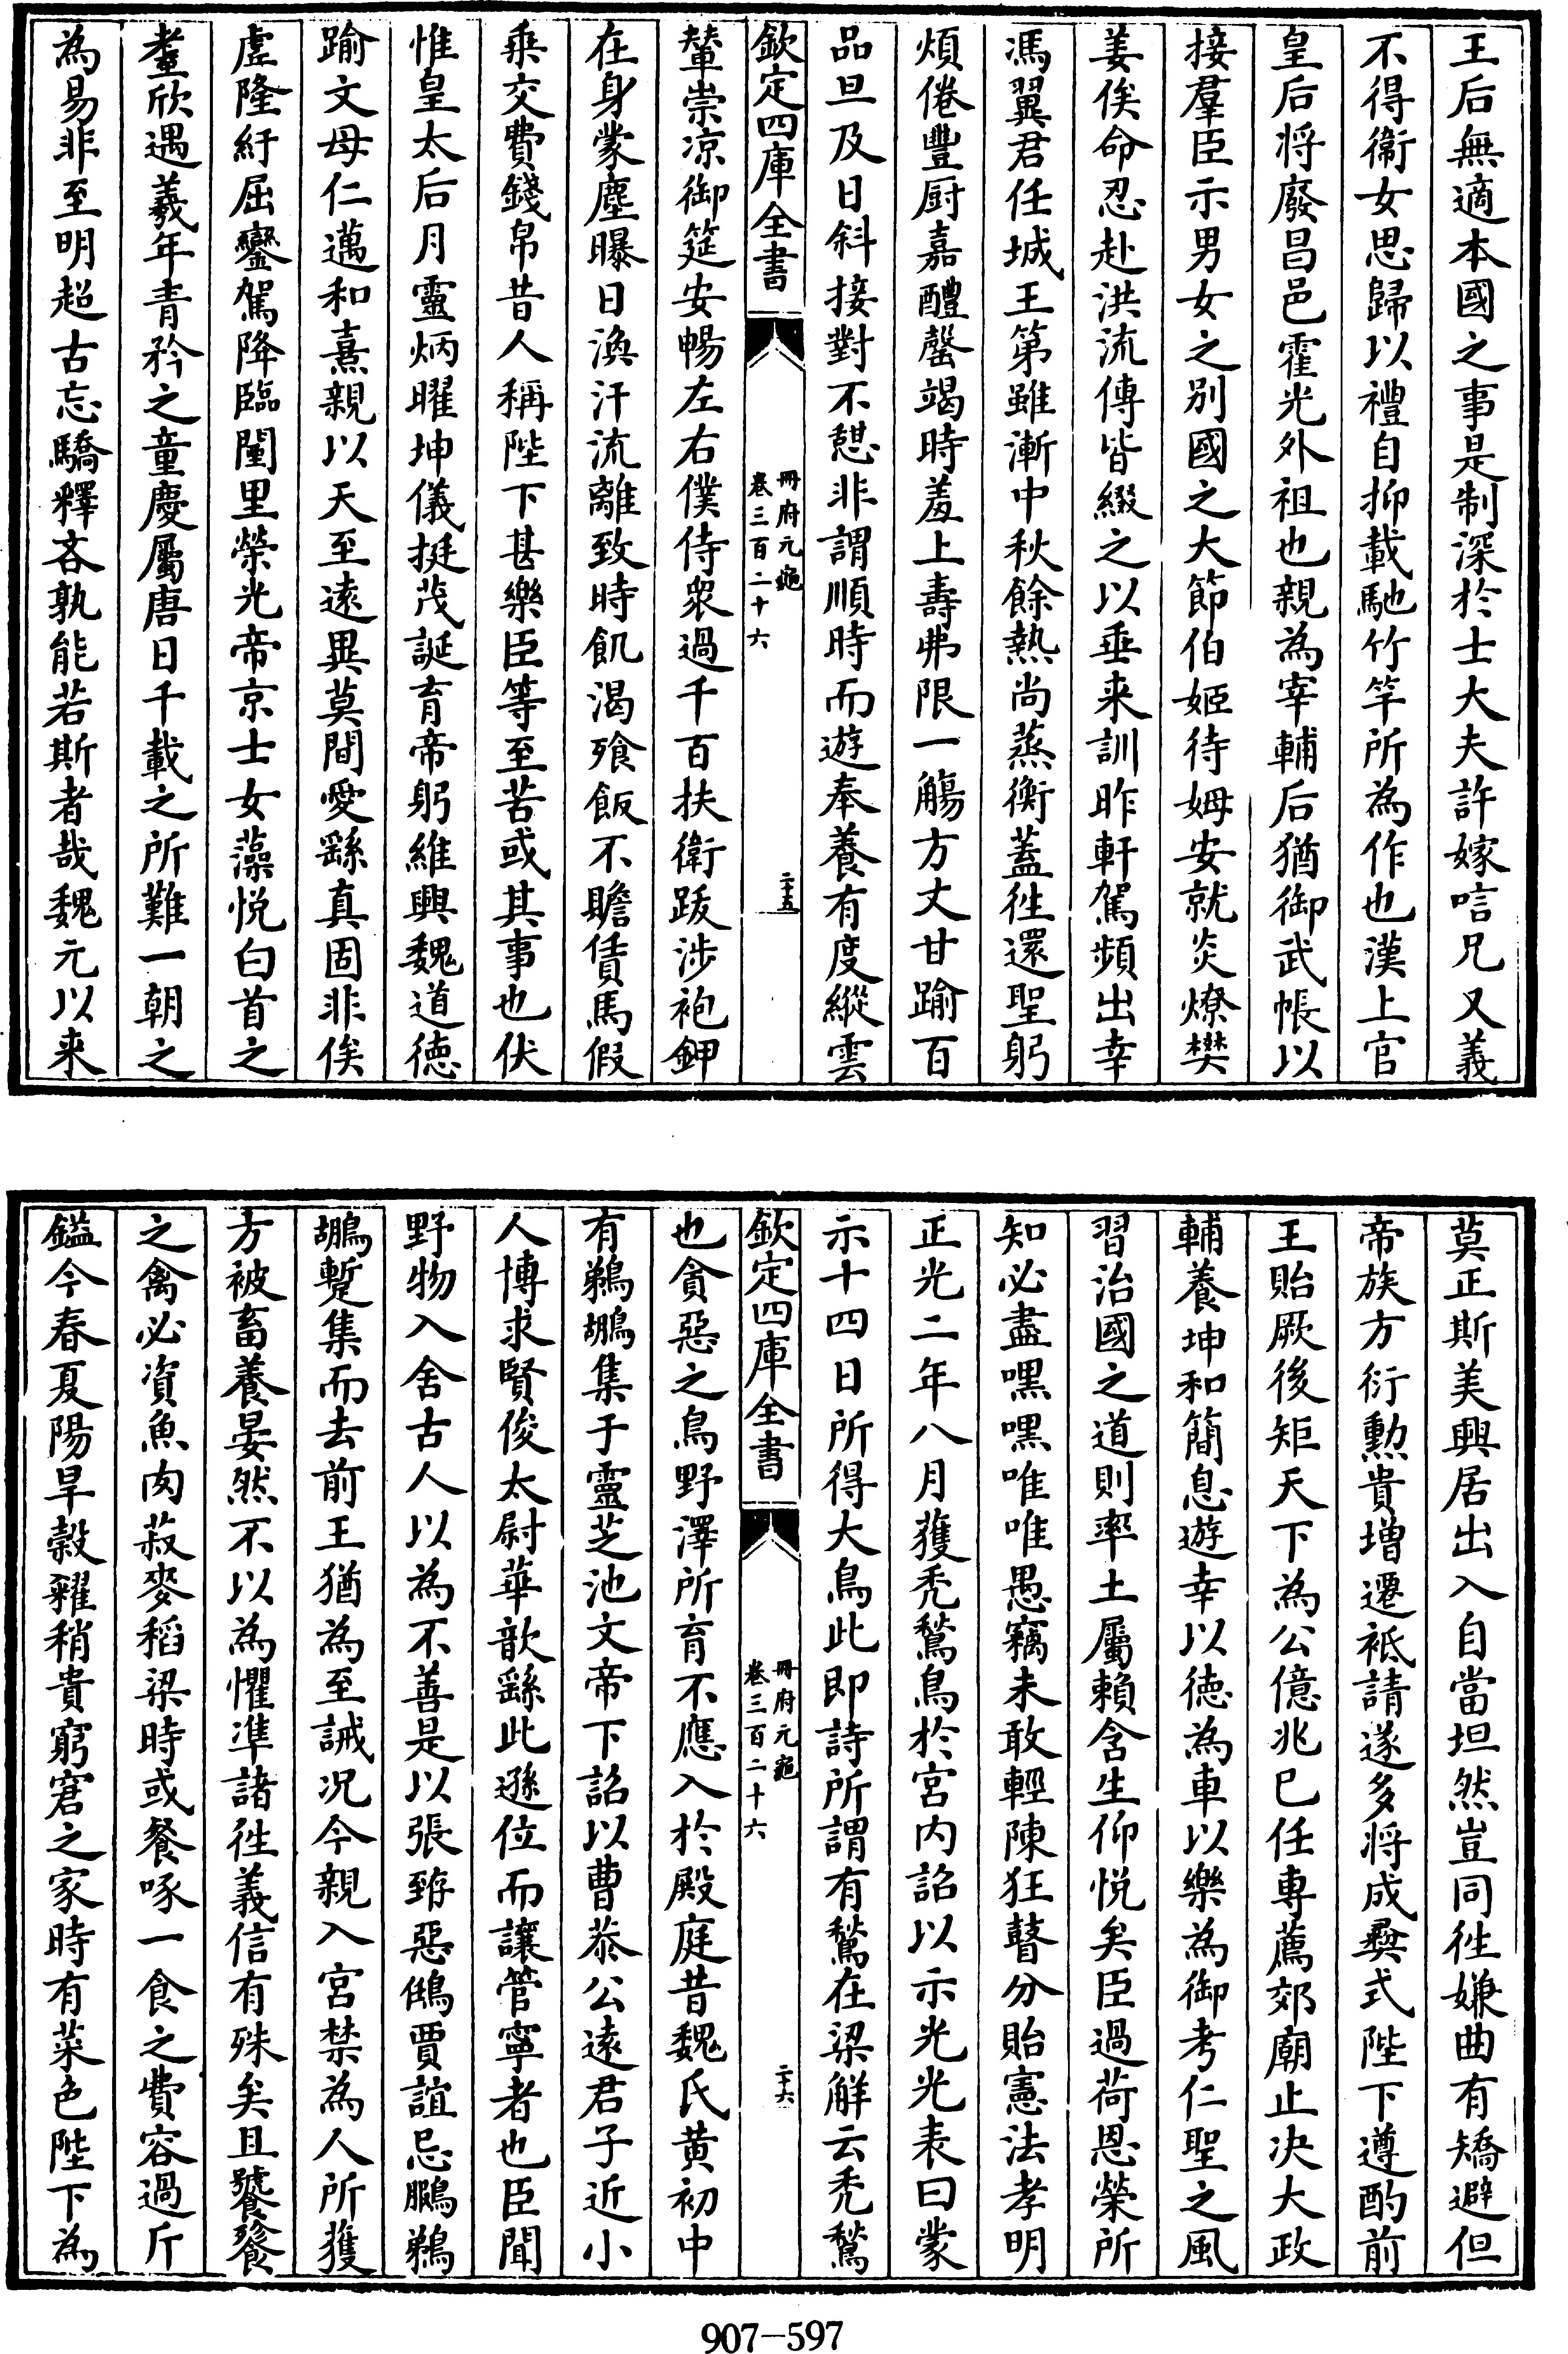 王后無適本國之事是制深於士大夫許嫁唁兄又義
不得衞女思歸以禮自抑載馳竹竿所為作也漢上官
皇后将廢昌邑霍光外祖也親為宰輔后猶御武帳以
接羣臣示男女之别國之大節伯姬待姆安就炎燎樊
姜俟命忍赴洪流傳皆綴之以垂来訓昨軒駕頻出幸
馮翼君任城王第雖漸中秋餘熱尚蒸衡蓋徃還聖躬
煩倦豐厨嘉醴罄竭時羞上壽弗限一觴方丈甘踰百
品旦及日斜接對不憇非謂順時而遊奉養有度縱雲
欽定四庫全書
冊府元龜
卷三百二十六
二十五
輦崇凉御筵安暢左右僕侍衆過千百扶衛跋涉袍鉀
在身蒙塵曝日渙汗流離致時飢渴飱飯不贍賃馬假
乗交費錢帛昔人稱陛下甚樂臣等至苦或其事也伏
惟皇太后月靈炳曜坤儀挺茂誕育帝躬維興魏道徳
踰文母仁邁和熹親以天至遠異莫間愛繇真固非俟
虚隆紆屈鑾駕降臨闈里榮光帝京士女藻悦白首之
耋欣遇羲年青矜之童慶屬唐日千載之所難一朝之
為易非至明超古忘驕釋吝孰能若斯者哉魏元以来
莫正斯美興居出入自當坦然豈同徃嫌曲有矯避但
帝族方衍勲貴増遷祗請遂多将成彞式陛下遵酌前
王貽厥後矩天下為公億兆已任専薦郊廟止决大政
輔養坤和簡息遊幸以徳為車以樂為御考仁聖之風
習治國之道則率土屬賴含生仰悦矣臣過荷恩榮所
知必盡嘿嘿唯唯愚竊未敢輕陳狂瞽分貽憲法孝明
正光二年八月獲秃鶖鳥於宮内詔以示光光表曰蒙
示十四日所得大鳥此即詩所謂有鶖在梁解云秃鶖
欽定四庫全書
冊府元龜
卷三百二十六
二十六
也貪惡之鳥野澤所育不應入於殿庭昔魏氏黄初中
有鵜鶘集于靈芝池文帝下詔以曹恭公遠君子近小
人博求賢俊太尉華歆繇此遜位而讓管寧者也臣聞
野物入舍古人以為不善是以張臶惡鵀賈誼忌鵩鵜
鶘蹔集而去前王猶為至誡况今親入宮禁為人所獲
方被畜養晏然不以為懼凖諸徃義信有殊矣且饕餮
之禽必資魚肉菽麥稻粱時或餐啄一食之費容過斤
鎰今春夏陽旱穀糴稍貴窮窘之家時有菜色陛下為
907-597